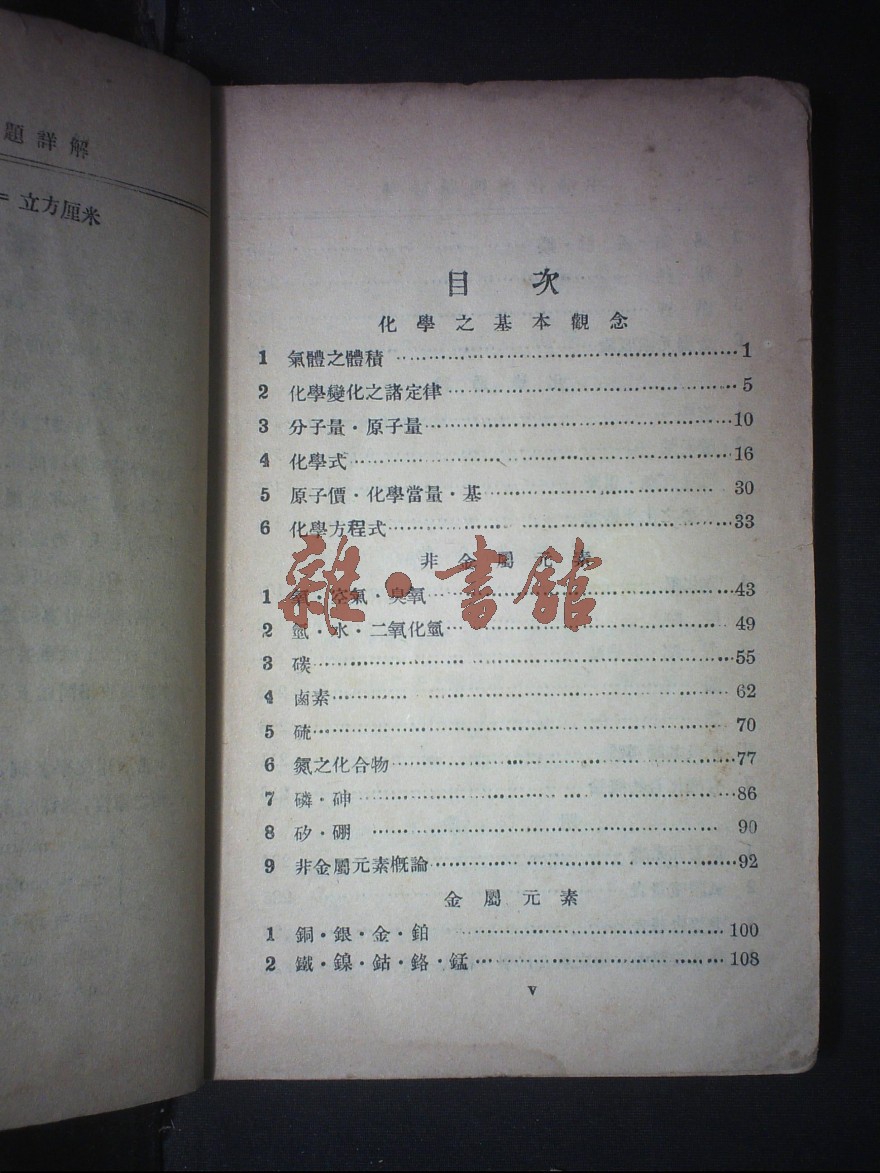 題詳解
= 立方厘米
目次
化學之基本觀念
1 氣體之體積 1
2 化學變化之諸定律 5
3 分子量·原子量 10
4 化學式 16
5 原子價·化學當量·基 30
6 化學方程式 33
非金屬元素
雜·書館
1 氧·空氣·臭氧 43
2 氫·水·二氧化氫 49
3 碳 55
4 鹵素 62
5 硫 70
6 氮之化合物 77
7 磷·砷 86
8 矽·硼 90
9 非金屬元素概論 92
金屬元素
1 銅·銀·金·鉑 100
2 鐵·鎳·鈷·鉻·錳 108
v